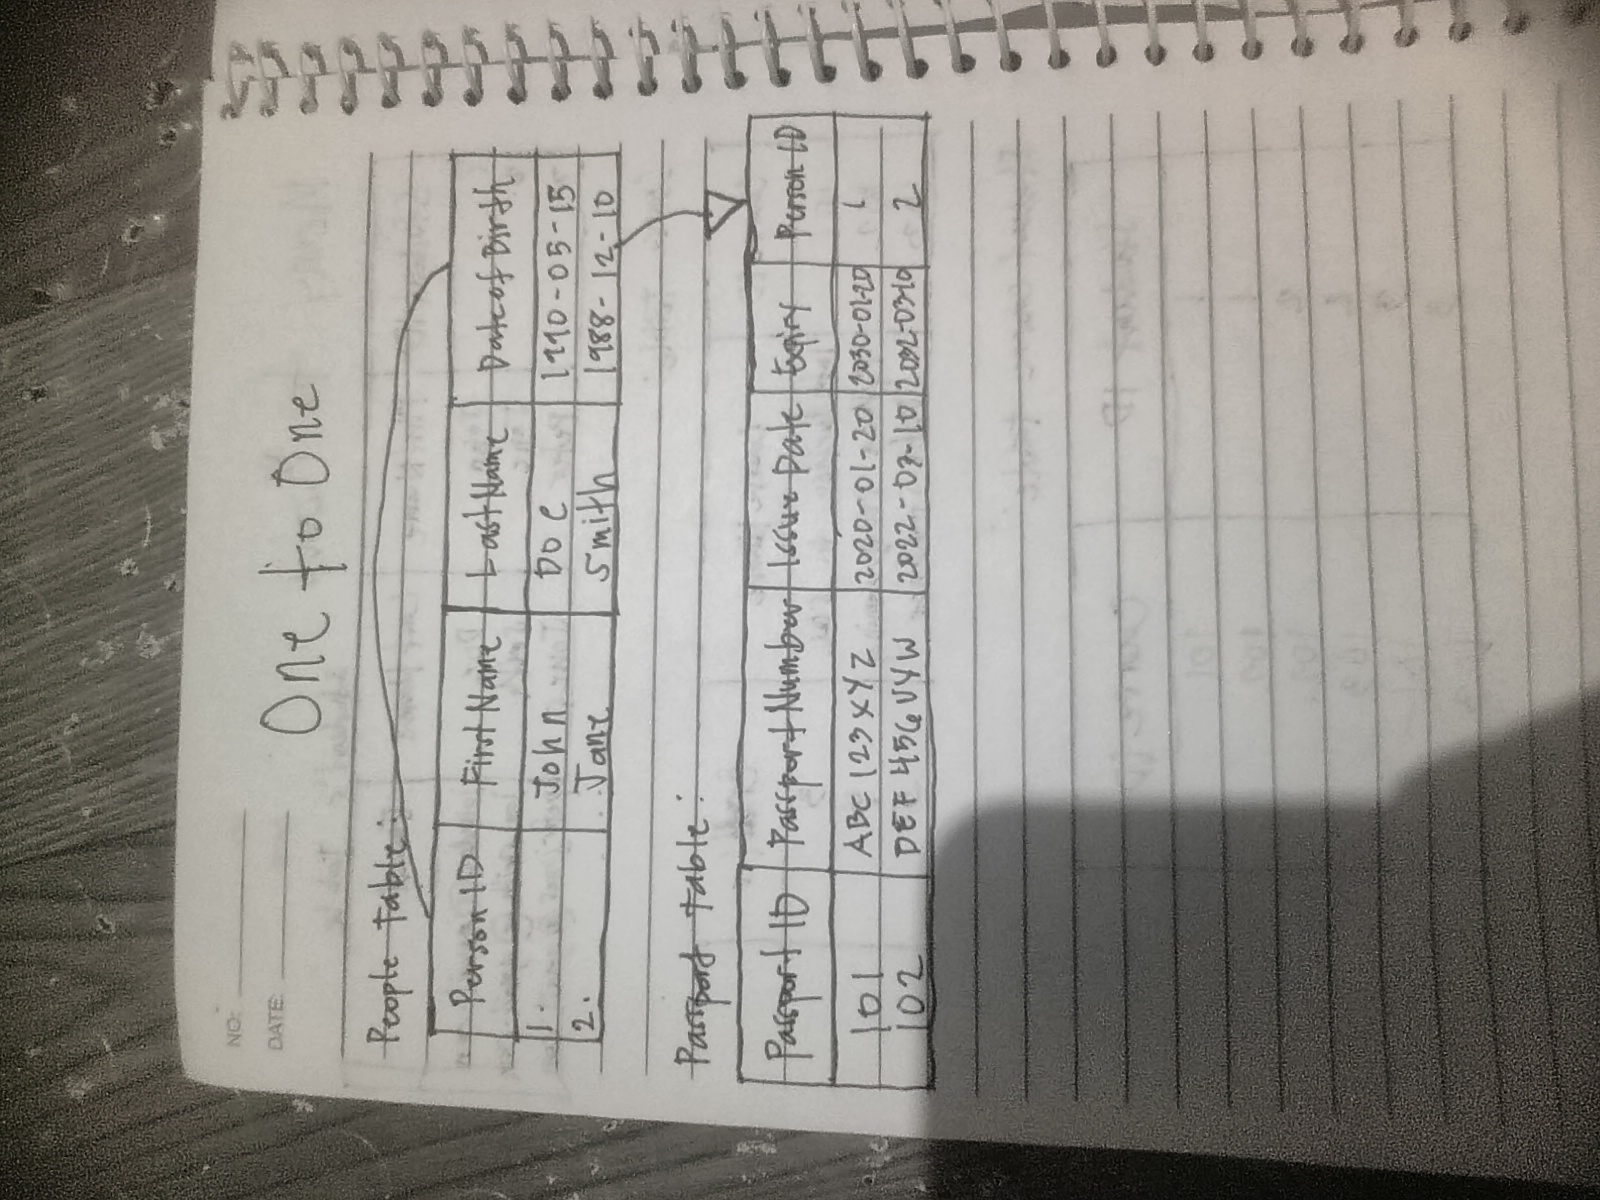 NO:
DATE:
One to One
People table:
Person ID First Name Last Name Date of Birth
1. John Doe 1990-05-15
2. Jane Smith 1988-12-10
Passport table:
Passport ID Passport Number Issue Date Expiry Person ID
101 ABC123XYZ 2020-01-20 2030-01-20 1
102 DEF456UVW 2022-03-10 2032-03-10 2